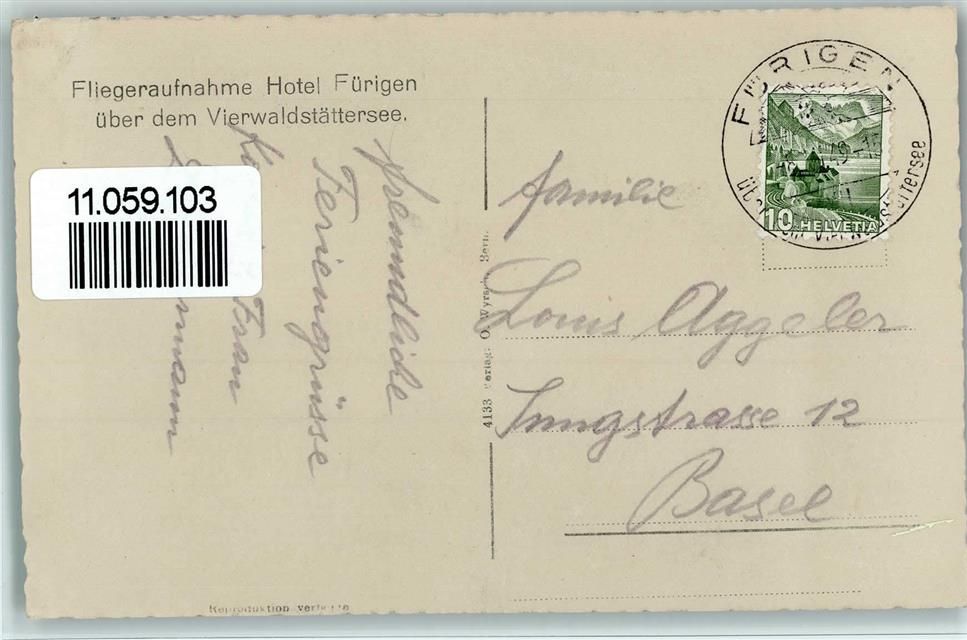 Fliegeraufnahme Hotel Fürigen
über dem Vierwaldstättersee.
11.059.103
freundliche
Feriengrüsse
Frau
mann
4133 Verlag: O. Wyrsch, Bern.
FÜRIGEN
10 HELVETIA
familie
Louis Aggeler
Jungstrasse 12
Basel
Reproduktion verboten